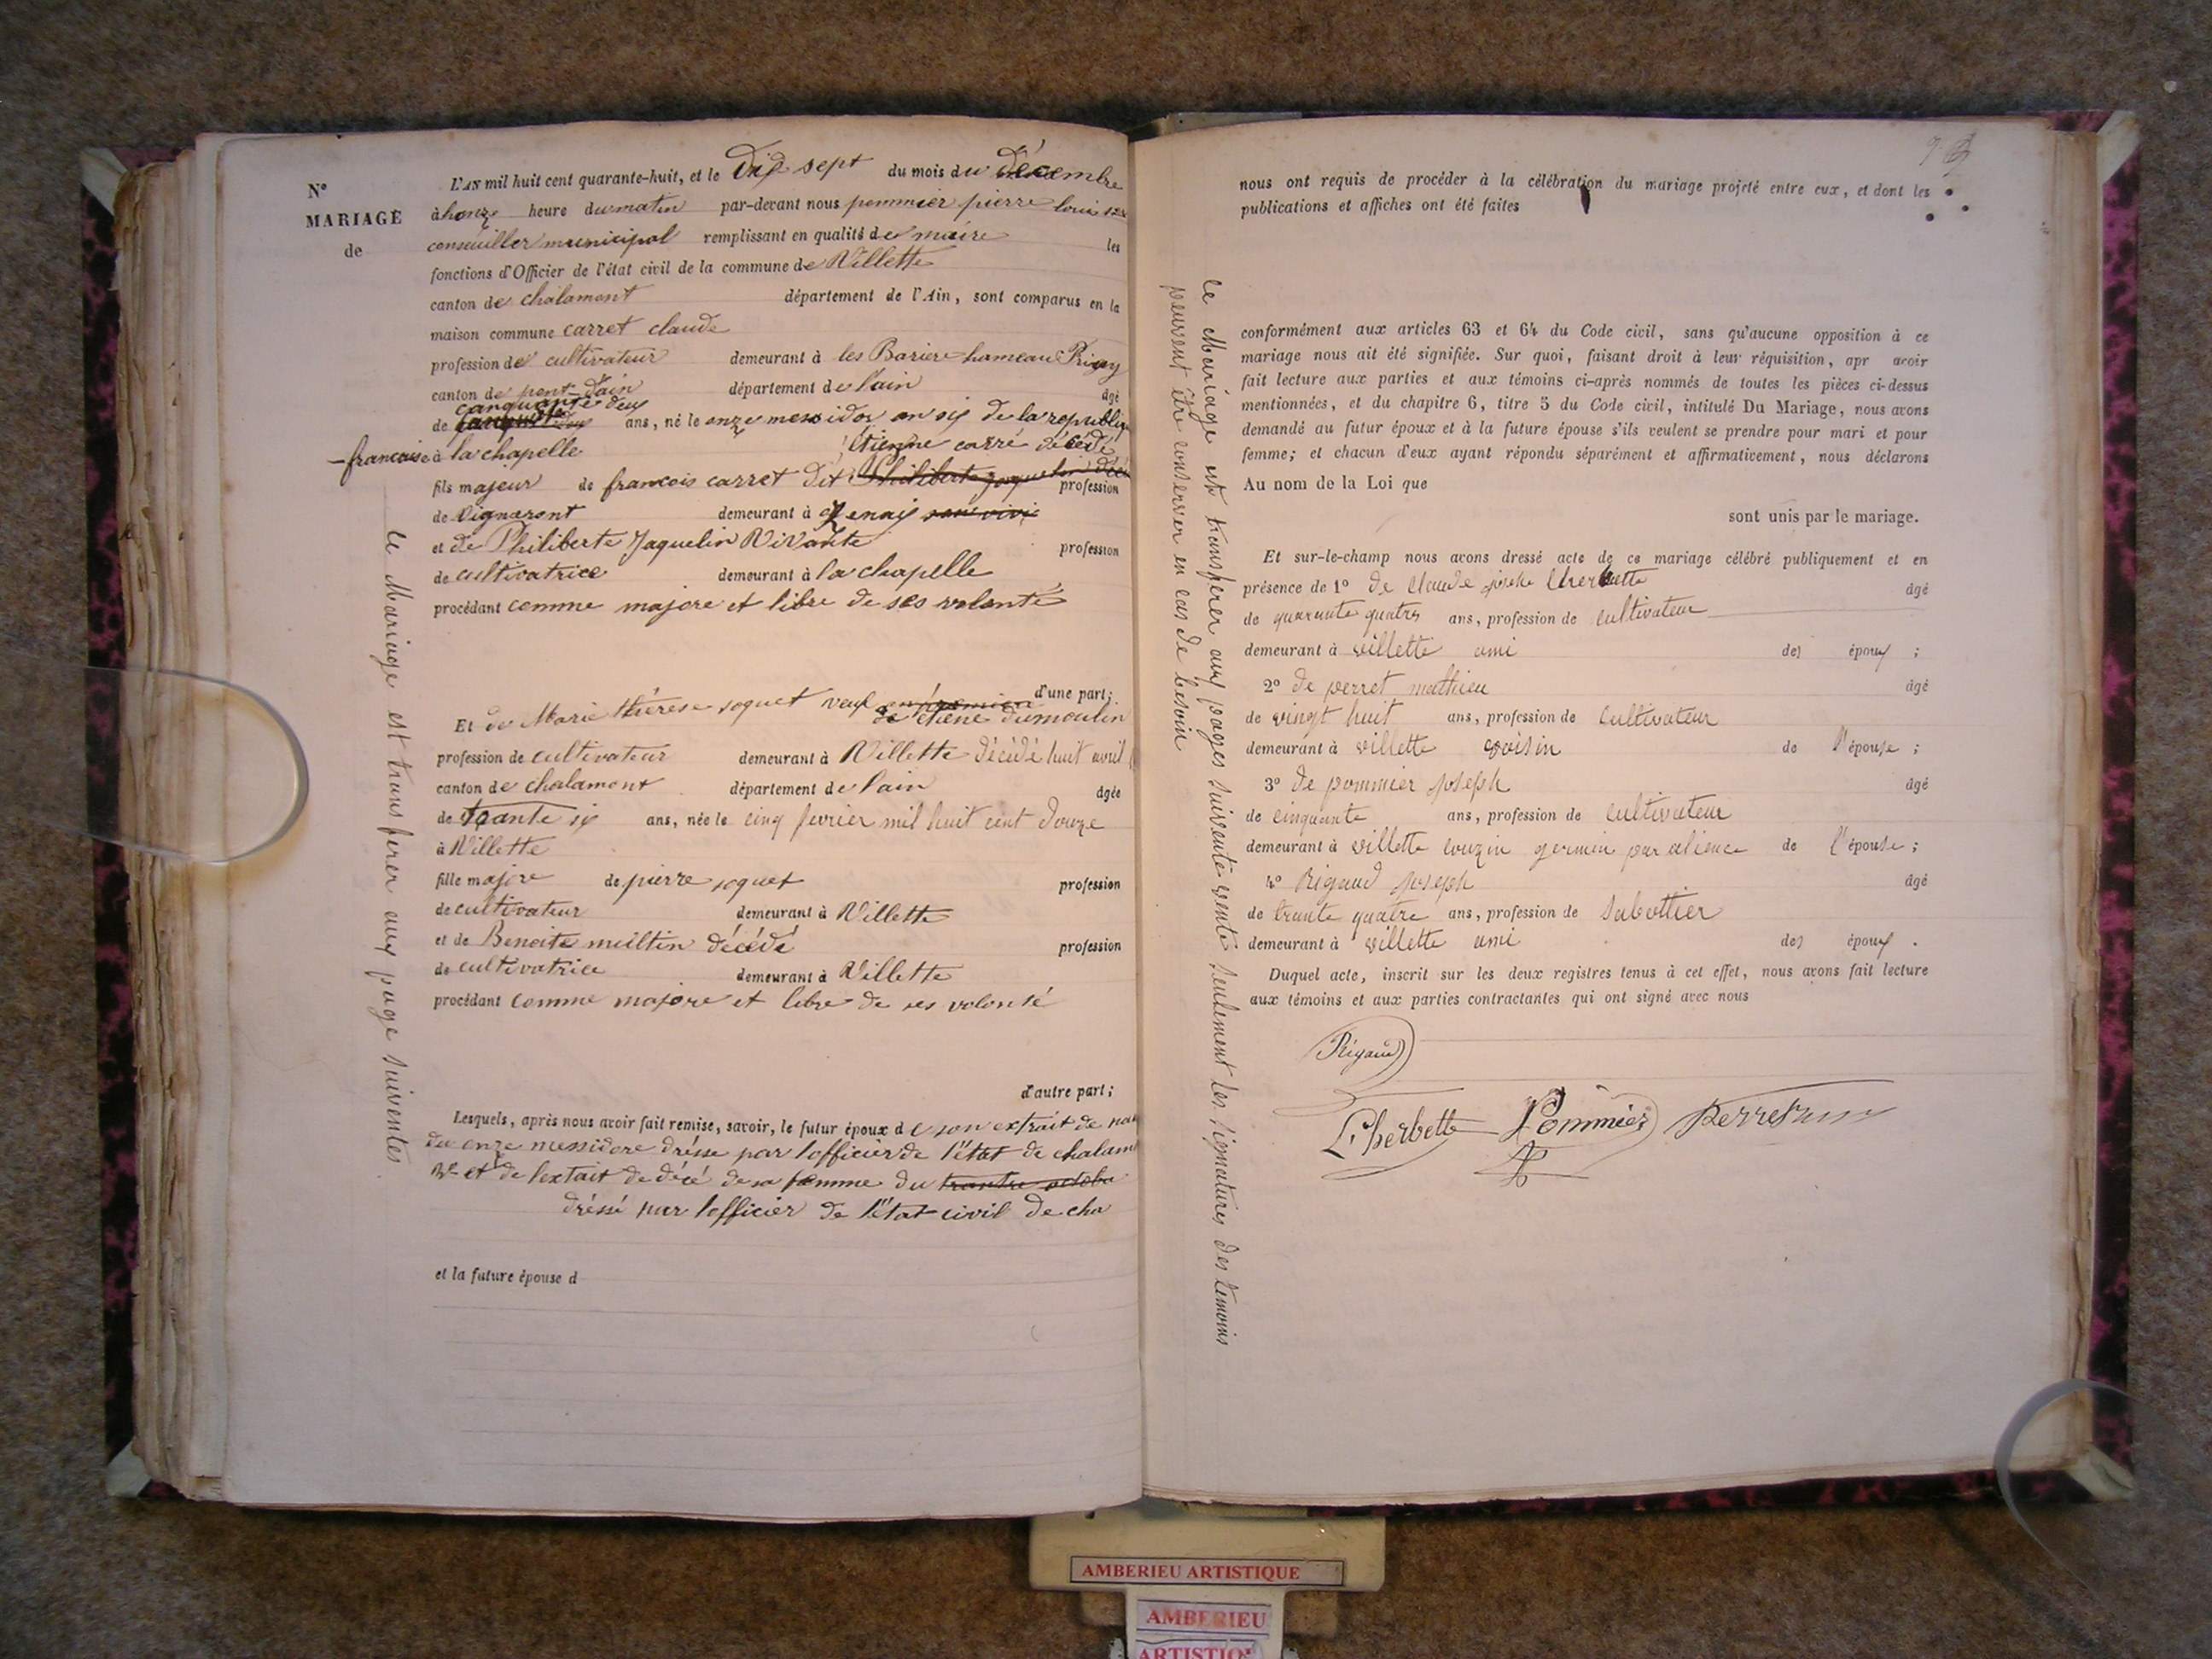 N°
MARIAGE
de
L'AN mil huit cent quarante-huit, et le Dix sept du mois du Décembre
à honze heure du matin par-devant nous pommier pierre louis 1er
conseuiller municipal remplissant en qualité de maire les
fonctions d'Officier de l'état civil de la commune de Villette
canton de chalamont département de l'Ain, sont comparus en la
maison commune carret claude
profession de cultivateur demeurant à les Bariere hameau Priay
canton de pont-Dain département de lain âgé
canquante deux
de ans, né le onze messidor an six de la republique
francaise à la chapelle Étienne carré décédé
fils majeur de francois carret dit Philiberte Jaquelin profession
de Vigneront demeurant à
et de Philiberte Jaquelin Vivante profession
de cultivatrice demeurant à la chapelle
procédant comme majore et libre de ses volonté
d'une part;
Et de Marie thérese soquet veuf
de étiene dumoulin
profession de cultivateur demeurant à Villette décédé huit avril
canton de chalamont département de lain âgée
de trante six ans, née le cinq fevrier mil huit cent douze
à Villette
fille majore de pierre soquet profession
de cultivateur demeurant à Villette
et de Benoite miiltin décédé profession
de cultivatrice demeurant à Villette
procédant comme majore et libre de ses volonté
d'autre part;
Lesquels, après nous avoir fait remise, savoir, le futur époux de son extrait de
du onze messidore drésse par lofficier de létat de
et de lextait de décé de sa femme du trantre octobre
dréssé par lofficier de létat civil de cha
et la future épouse d
le Mariage est transferer aux page suiventes
nous ont requis de procéder à la célébration du mariage projeté entre eux, et dont les
publications et affiches ont été faites
conformément aux articles 63 et 64 du Code civil, sans qu'aucune opposition à ce
mariage nous ait été signifiée. Sur quoi, faisant droit à leur réquisition, apr avoir
fait lecture aux parties et aux témoins ci-après nommés de toutes les pièces ci-dessus
mentionnées, et du chapitre 6, titre 5 du Code civil, intitulé Du Mariage, nous avons
demandé au futur époux et à la future épouse s'ils veulent se prendre pour mari et pour
femme; et chacun d'eux ayant répondu séparément et affirmativement, nous déclarons
Au nom de la Loi que
sont unis par le mariage.
Et sur-le-champ nous avons dressé acte de ce mariage célébré publiquement et en
présence de 1° de Claude Lherbette âgé
de quarante quatre ans, profession de cultivateur
demeurant à villette ami des époux ;
2° de perret mathieu âgé
de vingt huit ans, profession de cultivateur
demeurant à villette voisin de l'épouse ;
3° de pommier joseph âgé
de cinquante ans, profession de cultivateur
demeurant à villette couzin germin par alience de l'épouse ;
4° Rigaud joseph âgé
de trante quatre ans, profession de sabottier
demeurant à villette ami des époux .
Duquel acte, inscrit sur les deux registres tenus à cet effet, nous avons fait lecture
aux témoins et aux parties contractantes qui ont signé avec nous
Rigaud
Lherbette Pommier Perret
le Mariage est transferer aux pages suiventes seulement les signatures des temoins
peuvent être conserver en cas de besoin
AMBERIEU ARTISTIQUE
AMBERIEU
ARTISTIQ